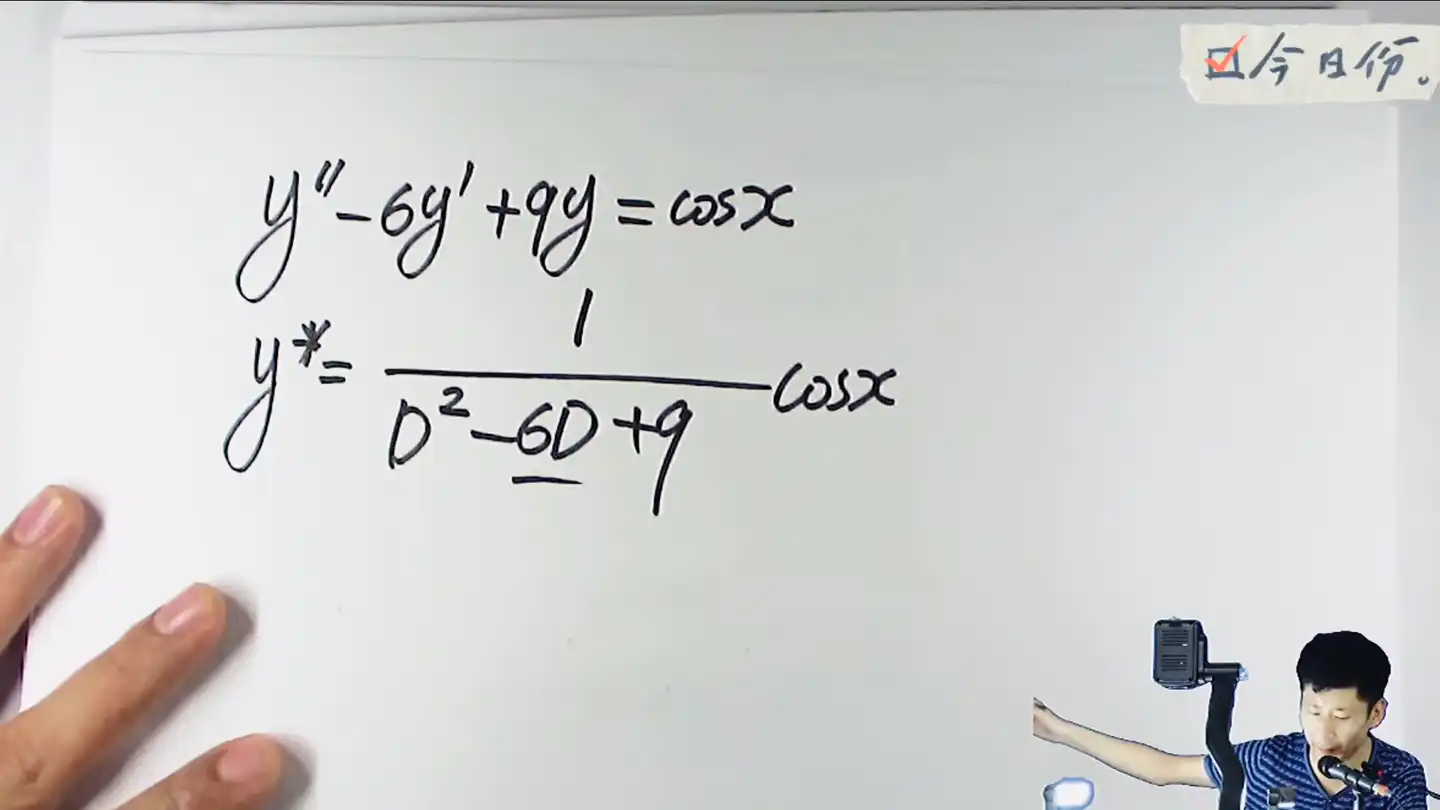 今日份。
y''-6y'+9y=cosx
y*= 1/(D²-6D+9) cosx